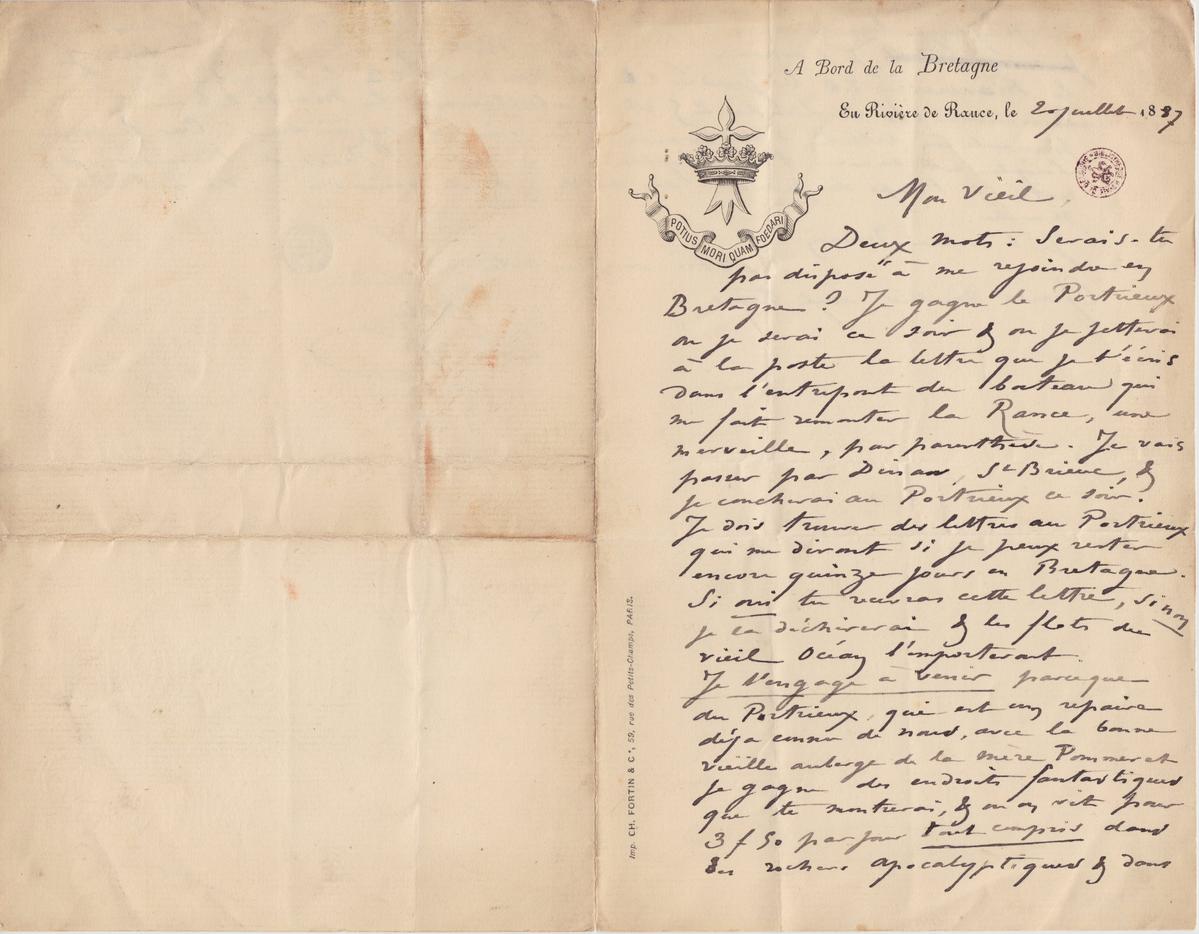 A Bord de la Bretagne
En Rivière de Rance, le 20 juillet 1887
POTIUS MORI QUAM FOEDARI
Mon Vieil
Deux mots : Serais-tu
pas disposé à me rejoindre en
Bretagne ? Je gagne le Portrieux
ou je serai ce soir & ou je jetterai
à la poste la lettre que je t'écris
dans l'entrepont du bateau qui
me fait remonter la Rance, une
merveille, par parenthèse. Je vais
passer par Dinan, St Brieuc, &
je coucherai au Portrieux ce soir.
Je dois trouver des lettres au Portrieux
qui me diront si je peux rester
encore quinze jours en Bretagne.
Si oui tu recevras cette lettre, sinon
je la déchirerai & les flots du
vieil Océan l'emporteront.
Je t'engage à venir parceque
du Portrieux, qui est un repaire
déja connu de nous, avec la bonne
vieille auberge de la mère Pommeret
je gagne des endroits fantastiques
que te montrerai, & ou on vit pour
3 f 50 par jour tout compris dans
des rochers apocalyptiques & dans
Imp. CH. FORTIN & Cie, 59, rue des Petits-Champs, PARIS.